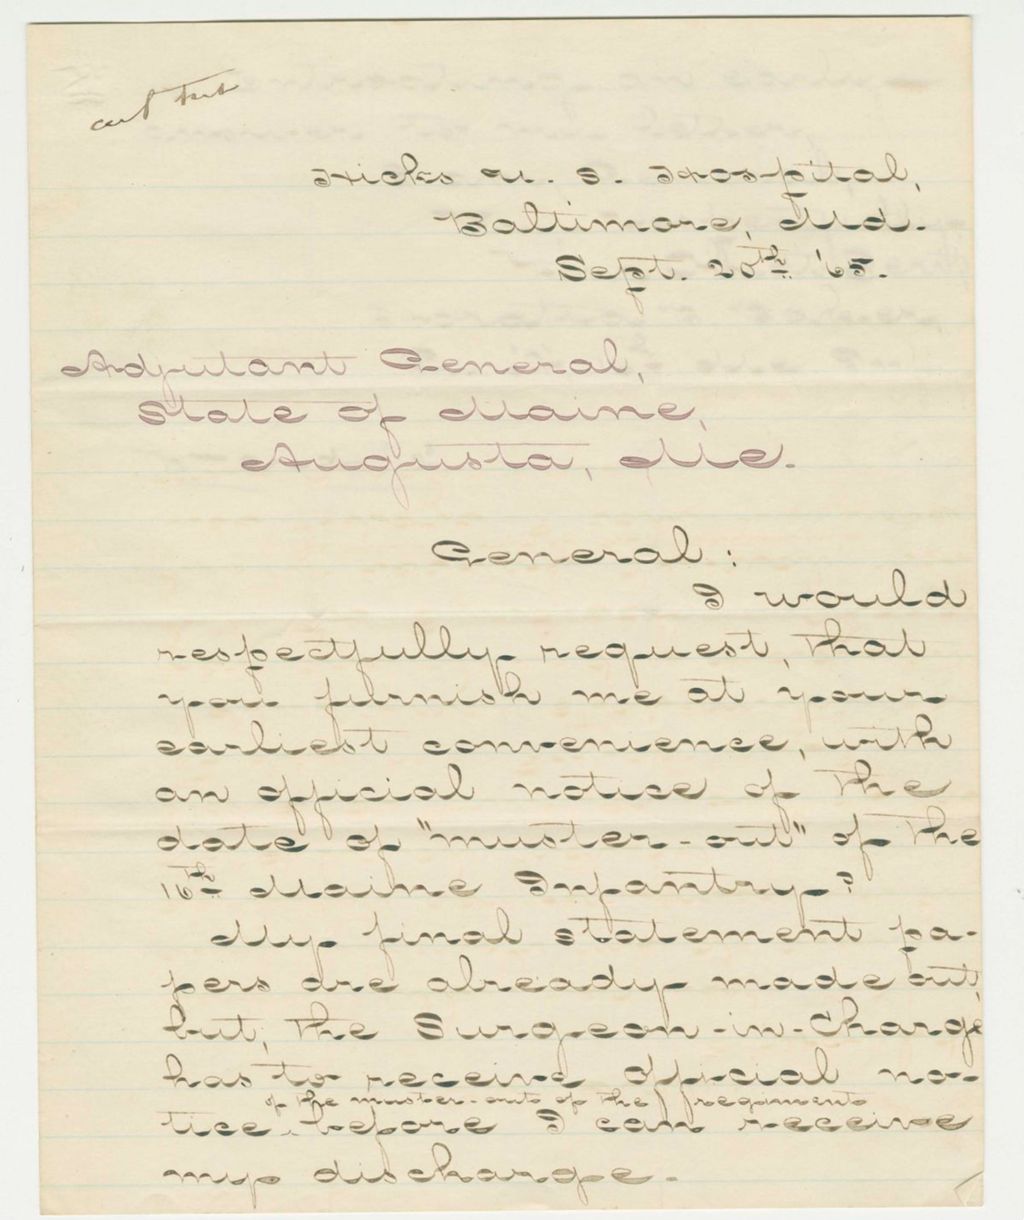 Hicks U. S. Hospital,
Baltimore, Md.
Sept. 20th '65.
Adjutant General,
State of Maine,
Augusta, Me.
General :
I would
respectfully request, that
you furnish me at your
earliest convenience, with
an official notice of the
date of "muster-out" of the
16th Maine Infantry?
My final statement pa-
pers are already made out,
but, the Surgeon-in-Charge
has to receive official no-
of the muster-out of the regiment
tice before I can receive
my discharge.